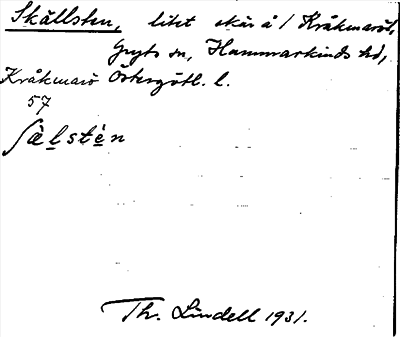 Skällsten, litet skär å / Kråkmaröl,
Gryts sn, Hammarkinds hd,
Kråkmarö Östergötl. l.
57
ʃàlstèn
Th. Lindell 1931.